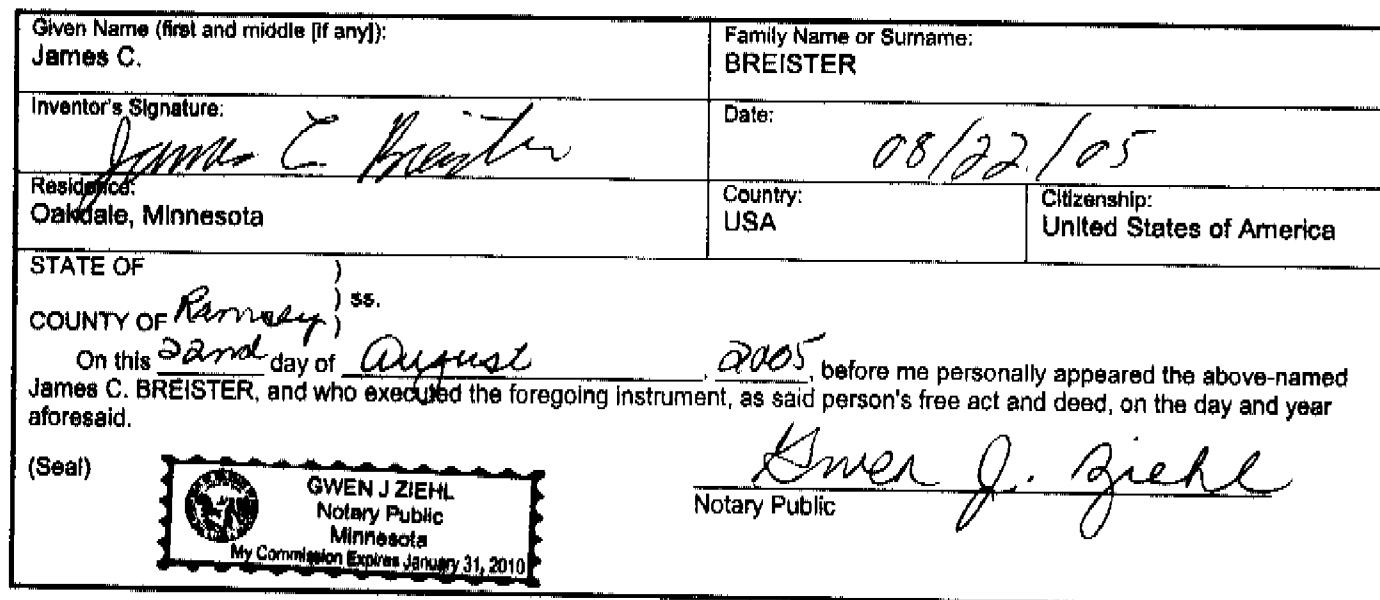 Given Name (first and middle [if any]):
James C.
Family Name or Surname:
BREISTER
Inventor's Signature:
James C. Breister
Date:
08/22/05
Residence:
Oakdale, Minnesota
Country:
USA
Citizenship:
United States of America
STATE OF )
) ss.
COUNTY OF Ramsey )
On this 22nd day of August, 2005, before me personally appeared the above-named
James C. BREISTER, and who executed the foregoing instrument, as said person's free act and deed, on the day and year
aforesaid.
(Seal)
GWEN J ZIEHL
Notary Public
Minnesota
My Commission Expires January 31, 2010
Gwen J. Ziehl
Notary Public